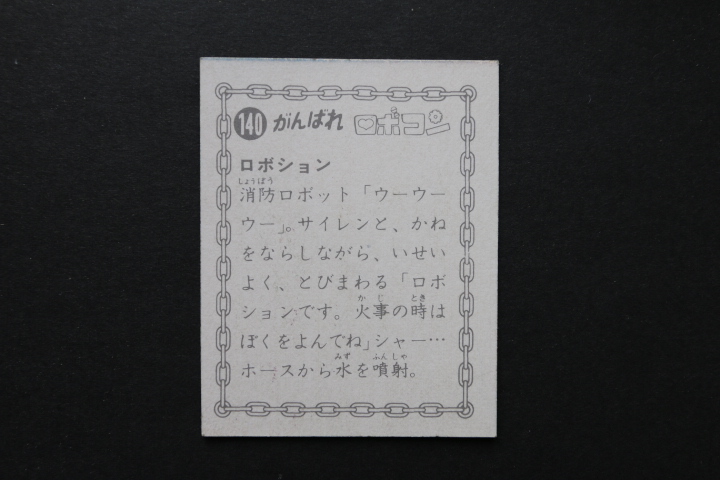 140 がんばれ ロボコン
ロボション
消防ロボット「ウーウー
ウー」。サイレンと、かね
をならしながら、いせい
よく、とびまわる「ロボ
ションです。火事の時は
ぼくをよんでね」シャー…
ホースから水を噴射。